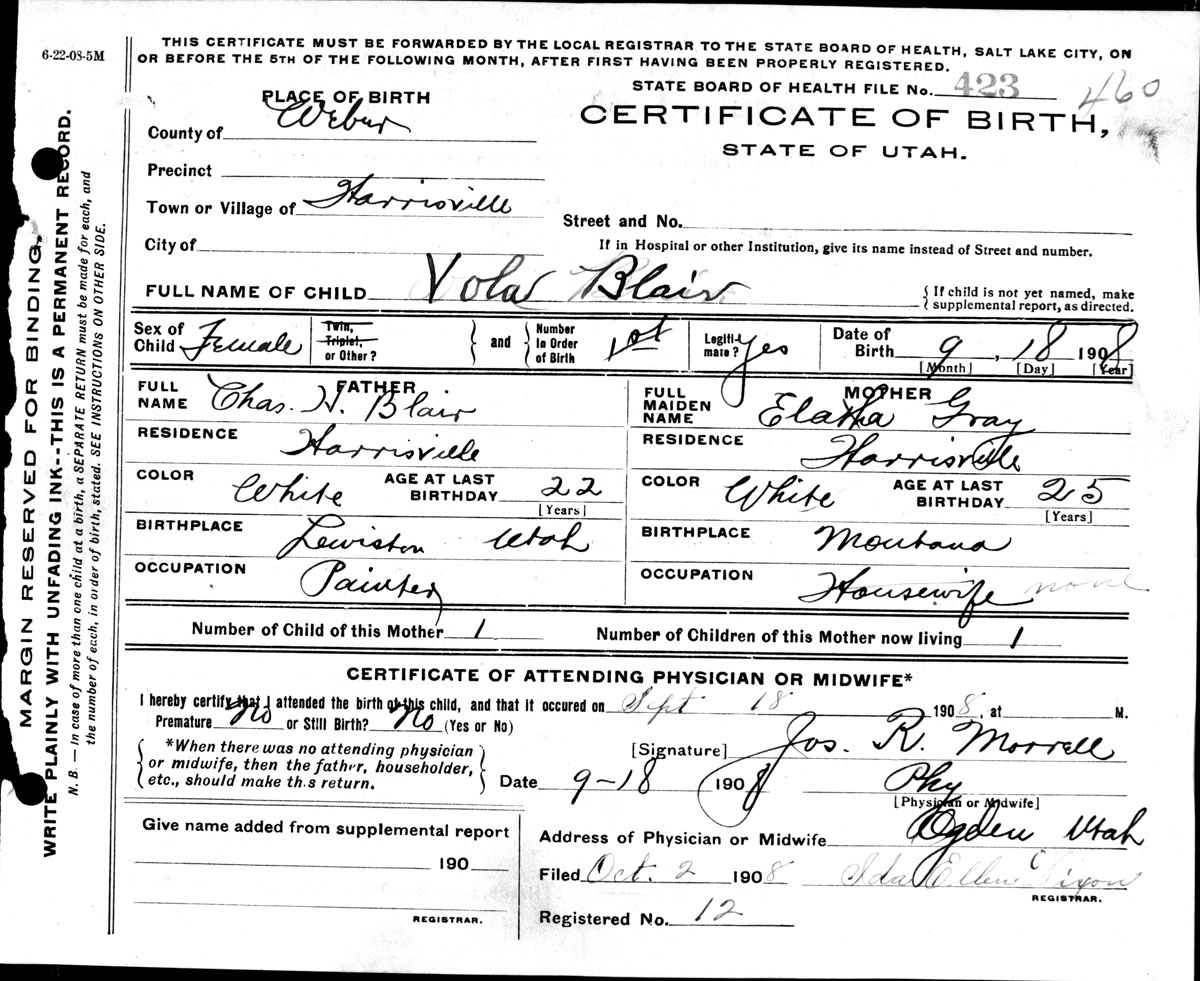 6-22-08-5M
THIS CERTIFICATE MUST BE FORWARDED BY THE LOCAL REGISTRAR TO THE STATE BOARD OF HEALTH, SALT LAKE CITY, ON
OR BEFORE THE 5TH OF THE FOLLOWING MONTH, AFTER FIRST HAVING BEEN PROPERLY REGISTERED.
STATE BOARD OF HEALTH FILE No. 423 460
PLACE OF BIRTH
CERTIFICATE OF BIRTH,
County of Weber
STATE OF UTAH.
Precinct
Town or Village of Harrisville
Street and No.
City of
If in Hospital or other Institution, give its name instead of Street and number.
FULL NAME OF CHILD Vola Blair
{ If child is not yet named, make
supplemental report, as directed.
Sex of Child Female
Twin, Triplet, or Other?
and
Number In Order of Birth 1st
Legitimate? Yes
Date of Birth 9, 18 1908
[Month] [Day] [Year]
FATHER
FULL NAME Chas. H. Blair
RESIDENCE Harrisville
COLOR White AGE AT LAST BIRTHDAY 22
[Years]
BIRTHPLACE Lewiston Utah
OCCUPATION Painter
MOTHER
FULL MAIDEN NAME Elatha Gray
RESIDENCE Harrisville
COLOR White AGE AT LAST BIRTHDAY 25
[Years]
BIRTHPLACE Montana
OCCUPATION Housewife none
Number of Child of this Mother 1 Number of Children of this Mother now living 1
CERTIFICATE OF ATTENDING PHYSICIAN OR MIDWIFE*
I hereby certify that I attended the birth of this child, and that it occured on Sept 18 1908, at M.
Premature No or Still Birth? No (Yes or No)
*When there was no attending physician
or midwife, then the father, householder,
etc., should make th.s return.
[Signature] Jos. R. Morrell
Date 9-18 1908 Phy
[Physician or Midwife]
Give name added from supplemental report
190
REGISTRAR.
Address of Physician or Midwife Ogden Utah
Filed Oct. 2 1908 Ida Ellen Dixon
REGISTRAR.
Registered No. 12
MARGIN RESERVED FOR BINDING.
WRITE PLAINLY WITH UNFADING INK--THIS IS A PERMANENT RECORD.
N. B. — In case of more than one child at a birth, a SEPARATE RETURN must be made for each, and
the number of each, in order of birth, stated. SEE INSTRUCTIONS ON OTHER SIDE.